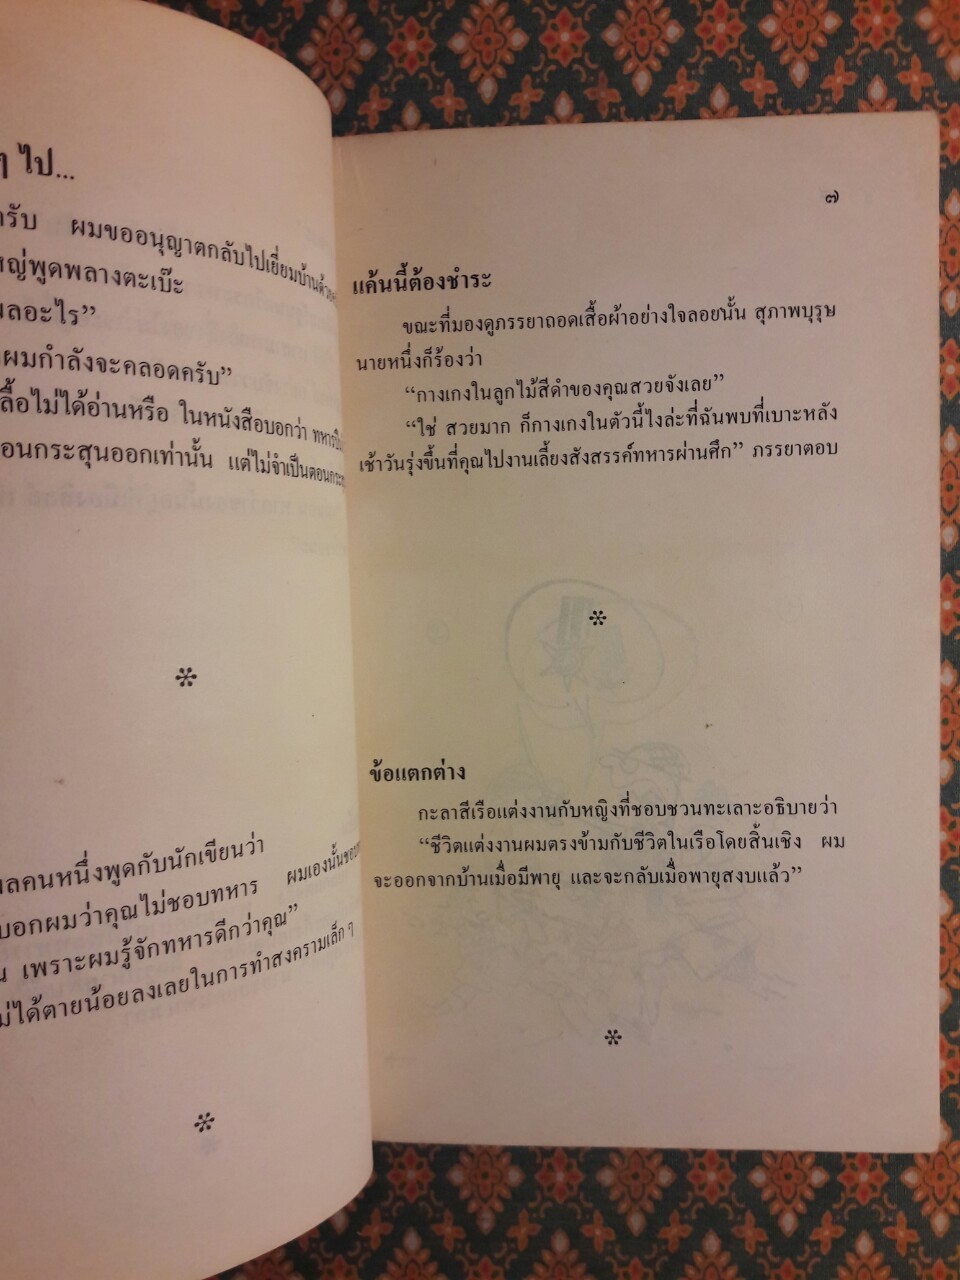 ๆ ไป...
ครับ ผมขออนุญาตกลับไปเยี่ยมบ้านด้วย
หญ่พูดพลางตะเบ๊ะ
ผลอะไร”
ผมกำลังจะคลอดครับ”
ลื้อไม่ได้อ่านหรือ ในหนังสือบอกว่า
อนกระสุนออกเท่านั้น แต่ไม่จำเป็นตอนกระ
*
ลคนหนึ่งพูดกับนักเขียนว่า
บอกผมว่าคุณไม่ชอบทหาร ผมเองนั้นชอบ
น เพราะผมรู้จักทหารดีกว่าคุณ”
ม่ได้ตายน้อยลงเลยในการทำสงครามเล็ก ๆ
*
๗
แค้นนี้ต้องชำระ
ขณะที่มองดูภรรยาถอดเสื้อผ้าอย่างใจลอยนั้น สุภาพบุรุษ
นายหนึ่งก็ร้องว่า
“กางเกงในลูกไม้สีดำของคุณสวยจังเลย”
“ใช่ สวยมาก ก็กางเกงในตัวนี้ไงล่ะที่ฉันพบที่เบาะหลัง
เช้าวันรุ่งขึ้นที่คุณไปงานเลี้ยงสังสรรค์ทหารผ่านศึก” ภรรยาตอบ
*
ข้อแตกต่าง
กะลาสีเรือแต่งงานกับหญิงที่ชอบชวนทะเลาะอธิบายว่า
“ชีวิตแต่งงานผมตรงข้ามกับชีวิตในเรือโดยสิ้นเชิง ผม
จะออกจากบ้านเมื่อมีพายุ และจะกลับเมื่อพายุสงบแล้ว”
*